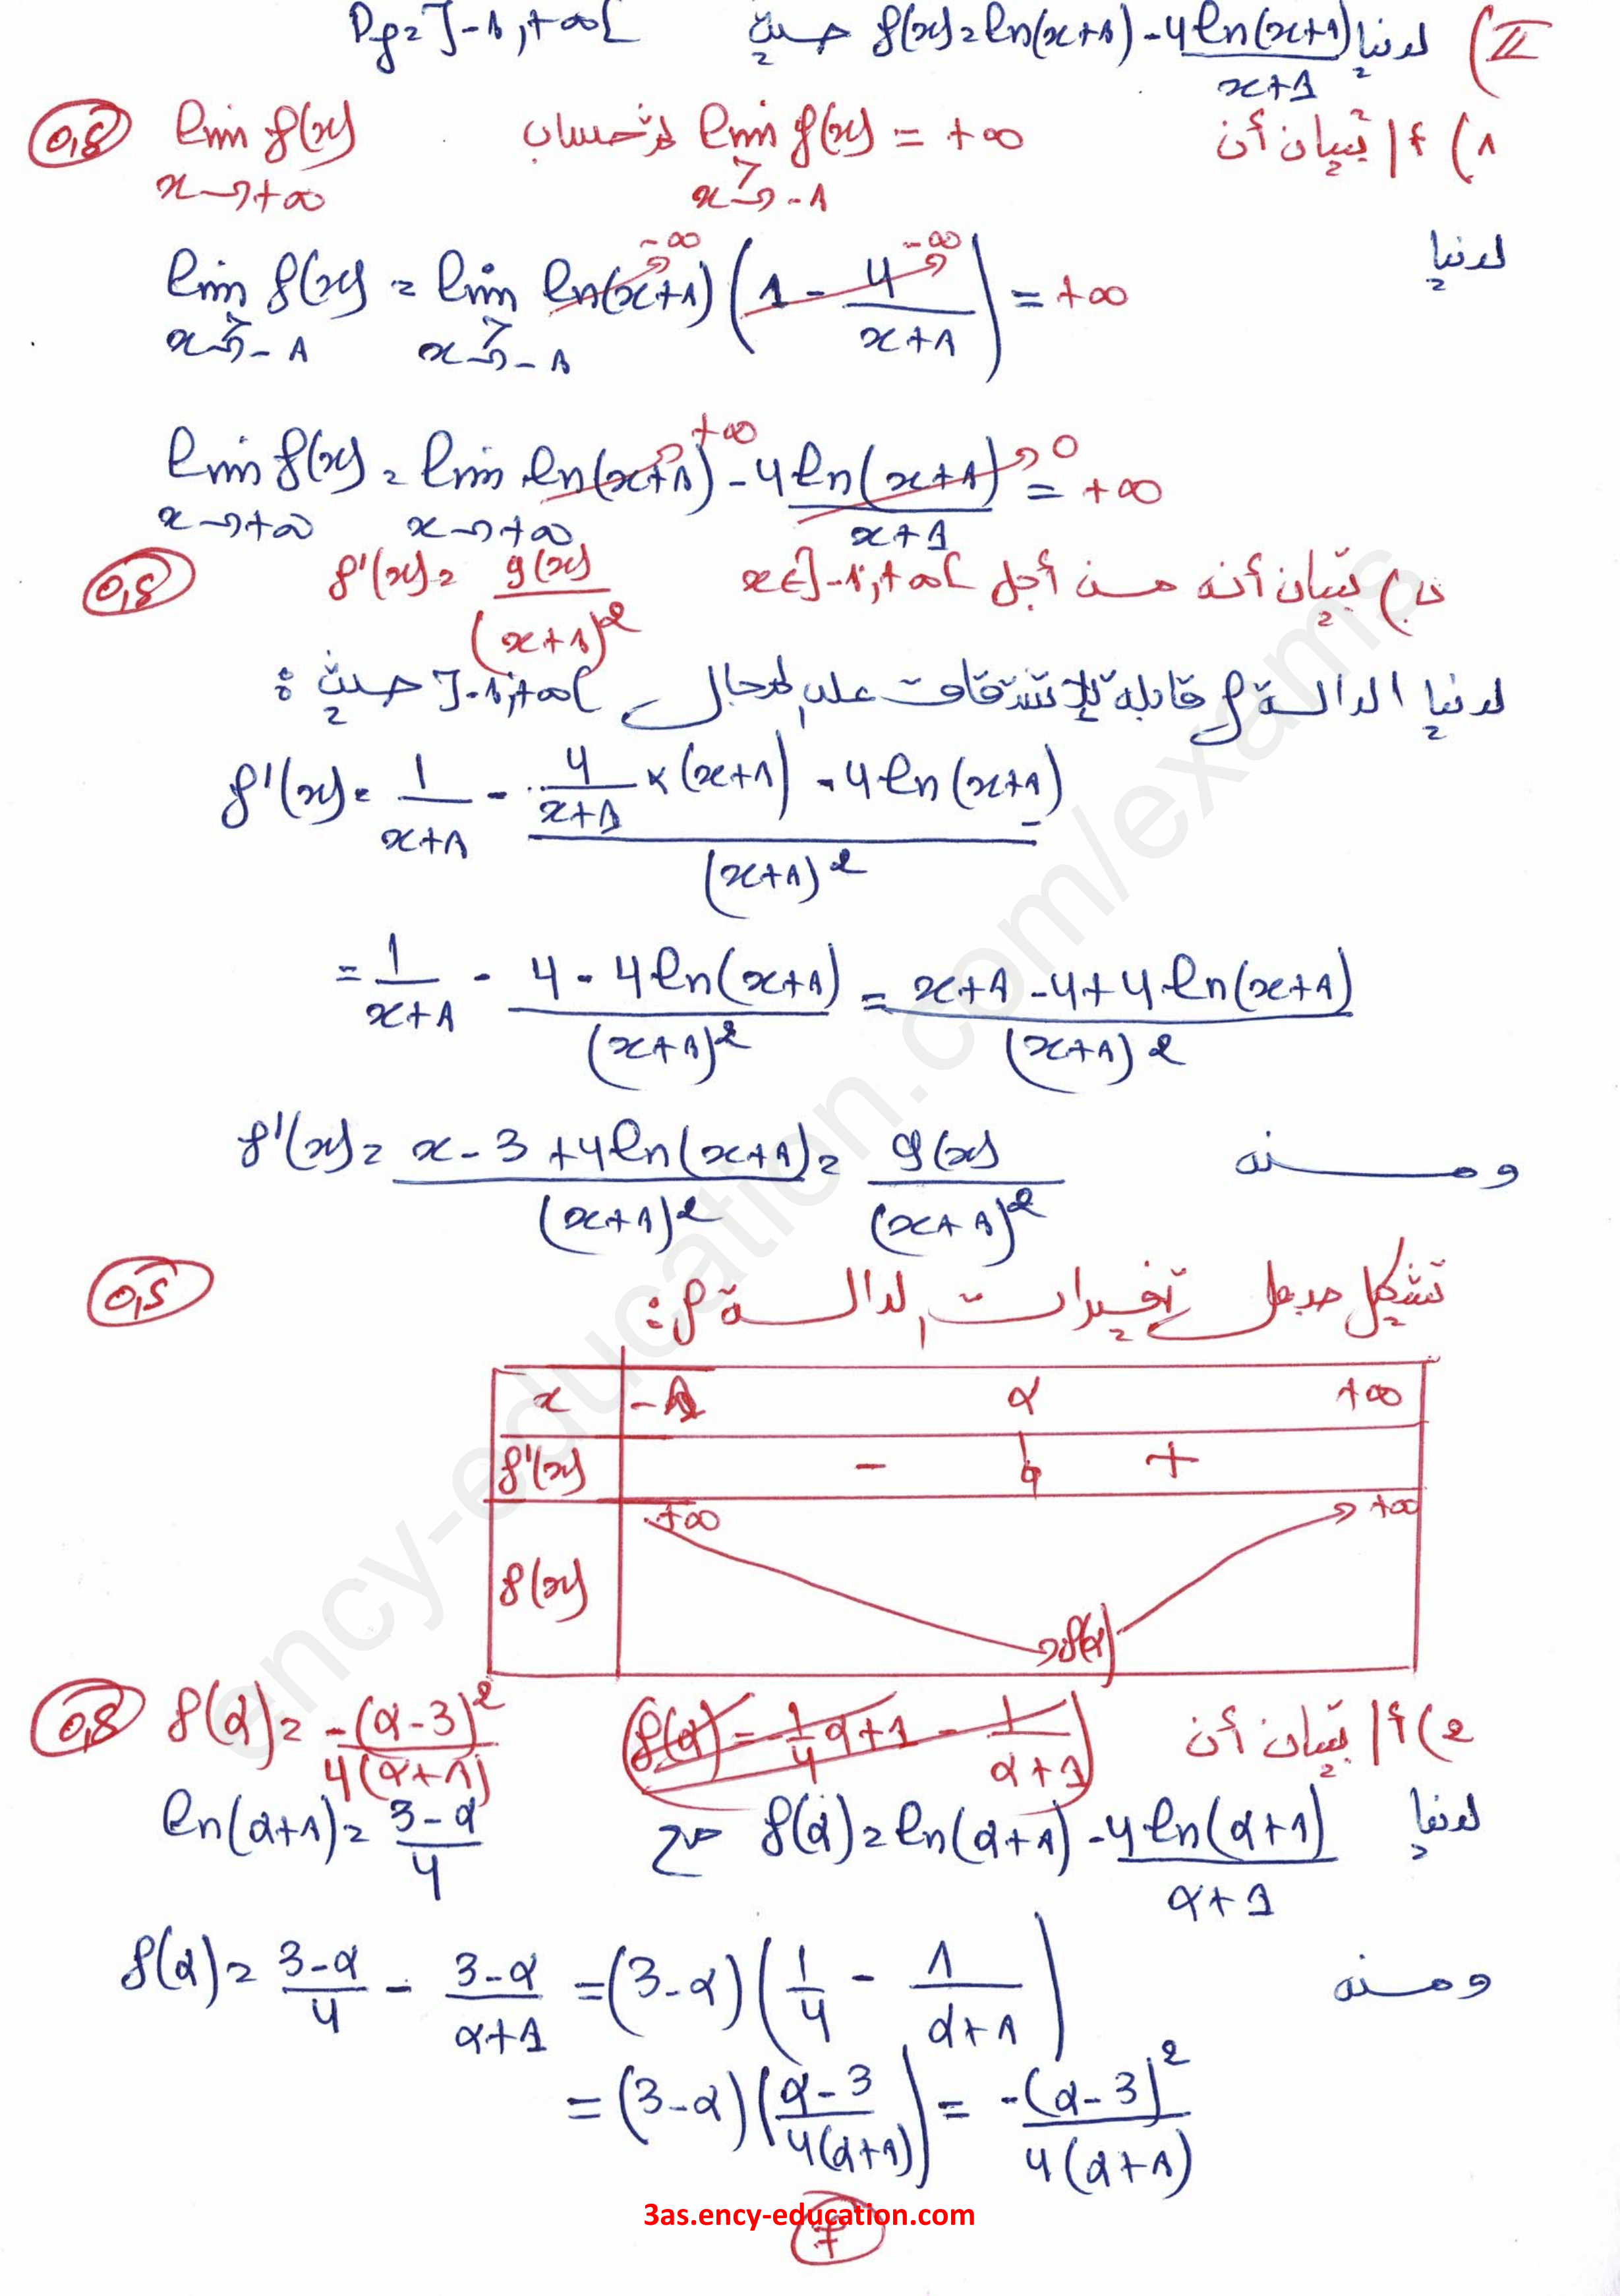 II) لدينا f(x)=ln(x+1)-4ln(x+1)/(x+1) حيث Df=]-1,+∞[
1) أ/ تبيان أن lim f(x) = +∞ (x→>-1) لحساب lim f(x) (x→+∞) 0,5
لدينا
lim f(x) = lim ln(x+1) (1 - 4/(x+1)) = +∞ (x→>-1) -∞ -∞
lim f(x) = lim ln(x+1) - 4ln(x+1)/(x+1) = +∞ (x→+∞) +∞ 0
ب) تبيان أنه من أجل x∈]-1,+∞[ f'(x) = g(x)/(x+1)² 0,5
لدينا الدالة f قابلة للإشتقاق على المجال ]-1,+∞[ حيث :
f'(x) = 1/(x+1) - (4/(x+1) × (x+1) - 4ln(x+1))/(x+1)²
= 1/(x+1) - (4-4ln(x+1))/(x+1)² = (x+1-4+4ln(x+1))/(x+1)²
ومنه f'(x) = (x-3+4ln(x+1))/(x+1)² = g(x)/(x+1)²
تشكيل جدول تغيرات الدالة f : 0,5
x -1 α +∞
f'(x) - 0 +
f(x) +∞ f(α) +∞
2) أ/ تبيان أن f(α) = -1/4 α+1 - 1/(α+1) f(α) = -(α-3)²/4(α+1) 0,5
لدينا f(α) = ln(α+1) - 4ln(α+1)/(α+1) مع ln(α+1) = (3-α)/4
ومنه f(α) = (3-α)/4 - (3-α)/(α+1) = (3-α)(1/4 - 1/(α+1))
= (3-α)((α-3)/4(α+1)) = -(α-3)²/4(α+1)
3as.ency-education.com
7
ency-education.com/exams